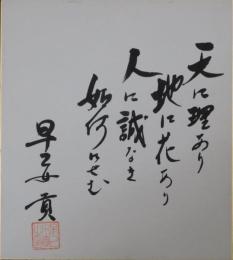 天に理あり
地に花あり
人に誠なき
如何にせむ
早乙女貢